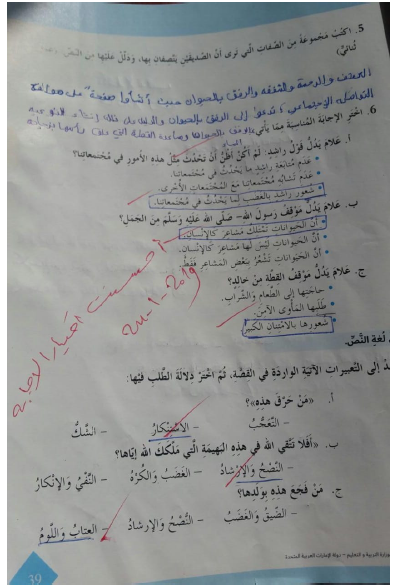 5. اكْتُبْ مَجْموعَةً مِنَ الصِّفاتِ الَّتي تَرى أَنَّ الصَّديقَيْنِ يَتَّصِفانِ بِها، وَدَلِّلْ عَلَيْها مِنَ النَّصِّ.
ثُنائِيٌّ)
والرحمة والشفقه والرفق بالحيوان حيث أنشأوا صفحة على مواقع
التواصل الإجتماعي تدعوا إلى الرفق بالحيوان
6. اخْتَرِ الإِجابَةَ المُناسِبَةَ مِمّا يَأْتي:
أ. عَلامَ يَدُلُّ قَوْلُ راشِدٍ: لَمْ أَكُنْ أَظُنُّ أَنْ تَحْدُثَ مِثْلُ هذِهِ الأُمورِ في مُجْتَمَعاتِنا؟
• عَدَمِ مُتابَعَةِ راشِدٍ ما يَحْدُثُ في مُجْتَمَعاتِنا.
• عَدَمِ تَشابُهِ مُجْتَمَعاتِنا مَعَ المُجْتَمَعاتِ الأُخْرى.
• شُعورِ راشِدٍ بِالغَضَبِ لِما يَحْدُثُ في مُجْتَمَعاتِنا.
ب. عَلامَ يَدُلُّ مَوْقِفُ رَسولِ اللهِ– صَلّى اللهُ عَلَيْهِ وَسَلَّمَ مِنَ الجَمَلِ؟
• أَنَّ الحَيَواناتِ تَمْتَلِكُ مَشاعِرَ كَالإِنْسانِ.
• أَنَّ الحَيَواناتِ لَيْسَ لَها مَشاعِرُ كَالإِنْسانِ.
• أَنَّ الحَيَواناتِ تَشْعُرُ بِبَعْضِ المَشاعِرِ فَقَطْ.
ج. عَلامَ يَدُلُّ مَوْقِفُ القِطَّةِ مِنْ خالِدٍ؟
• حاجَتِها إِلى الطَّعامِ وَالشَّرابِ.
• طَلَبِها المَأْوى الآمِنَ.
• شُعورِها بِالامْتِنانِ الكَبيرِ.
أحسنت اختيار الاجابه
2019-1-
لُغَةِ النَّصِّ.
إِلى التَّعْبيراتِ الآتِيَةِ الوارِدَةِ في القِصَّةِ، ثُمَّ اخْتَرْ دِلالَةَ الطَّلَبِ فيها:
أ. «مَنْ حَرَّقَ هذِهِ»؟
– التَّعَجُّبُ – الاسْتِنْكارُ – الشَّكُّ
ب. «أَفَلا تَتَّقي اللهَ في هذِهِ البَهيمَةِ الَّتي مَلَّكَكَ اللهُ إِيّاها»؟
– النُّصْحُ وَالإِرْشادُ – الغَضَبُ وَالكُرْهُ – النَّفْيُ وَالإِنْكارُ
ج. مَنْ فَجَعَ هذِهِ بِوَلَدِها؟
– الضّيقُ وَالغَضَبُ – النُّصْحُ وَالإِرْشادُ – العِتابُ وَاللَّوْمُ
وزارة التربية والتعليم – دولة الإمارات العربية المتحدة
39